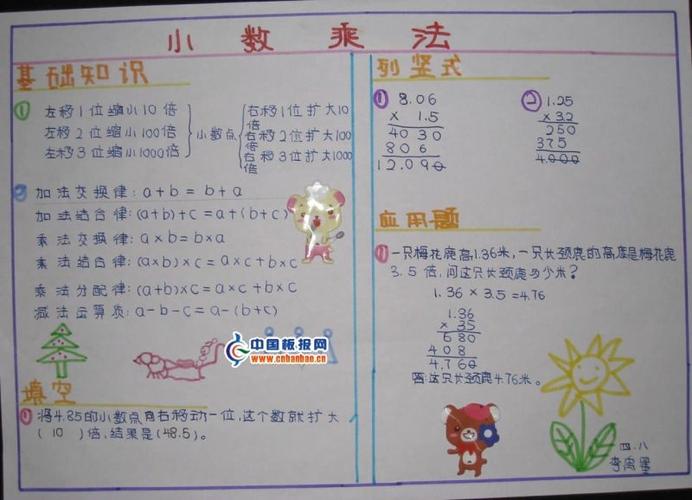 小数乘法
基础知识
① 左移1位缩小10倍
左移2位缩小100倍
左移3位缩小1000倍
小数点
右移1位扩大10倍
右移2位扩大100倍
右移3位扩大1000
② 加法交换律:a+b=b+a
加法结合律:(a+b)+c=a+(b+c)
乘法交换律:a×b=b×a
乘法结合律:(a×b)×c=a×c+b×c
乘法分配律:(a+b)×c=a×c+b×c
减法运算质:a-b-c=a-(b+c)
中国板报网
www.cnbanbao.cn
填空
① 将4.85的小数点向右移动一位,这个数就扩大
(10)倍,结果是(48.5)。
列竖式
① 8.06
× 1.5
4030
806
12.090
② 1.25
×32
250
375
4.000
应用题
① 一只梅花鹿高1.36米,一只长颈鹿的高度是梅花鹿
3.5倍,问这只长颈鹿多少米?
1.36×3.5=4.76
1.36
×35
680
408
4.760
答:这只长颈鹿4.76米。
四.八